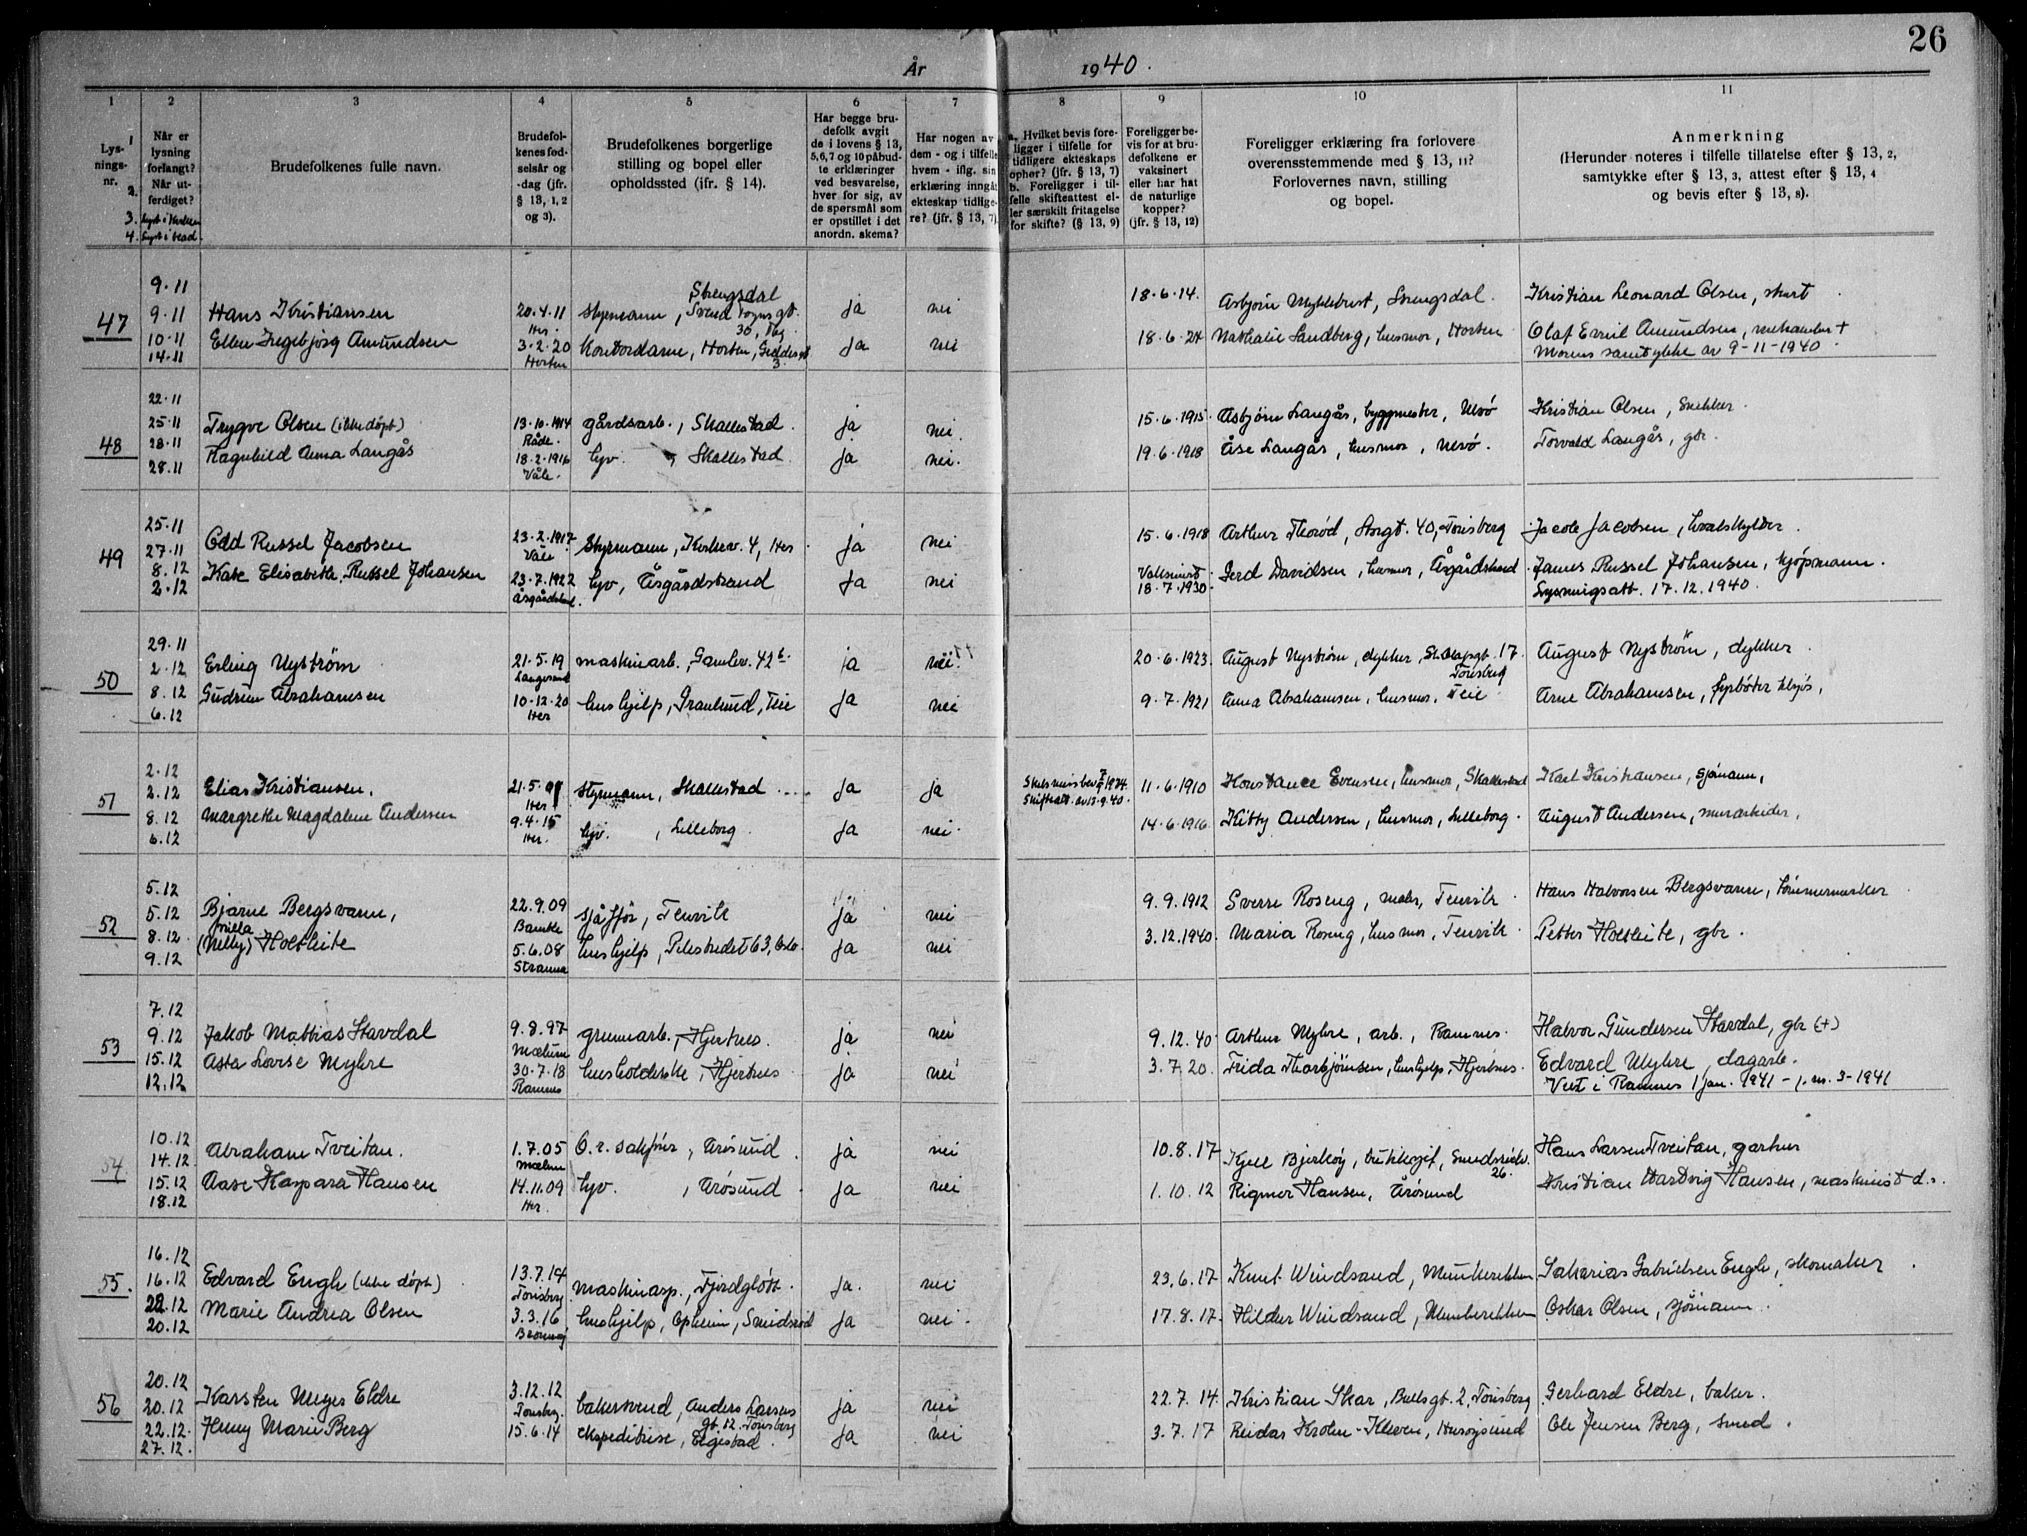 26
År 1940.
1 2 3 4 5 6 7 8 9 10 11
1
Lys-
nings-
nr.
2.
3.
4.
Når er
lysning
forlangt?
Når ut-
ferdiget?
Brudefolkenes fulle navn.
Brudefol-
kenes fød-
selsår og
-dag (jfr.
§ 13, 1, 2
og 3).
Brudefolkenes borgerlige
stilling og bopel eller
opholdssted (ifr. § 14).
Har begge bru-
defolk avgit
de i lovens § 13,
5, 6, 7 og 10 påbud-
te erklæringer
ved besvarelse,
hver for sig, av
de spørsmål som
er opstillet i det
anordn. skema?
Har nogen av
dem - og i tilfelle
hvem - iflg. sin
erklæring inngåt
ekteskap tidlige-
re? (jfr. § 13, 7)
a. Hvilket bevis fore-
ligger i tilfelle for
tidligere ekteskaps
ophør? (§ 13, 7)
b. Foreligger i til-
felle skifteattest el-
ler særskilt fritagelse
for skifte? (§ 13, 9)
Foreligger be-
vis for at bru-
defolkene er
vaksinert
eller har hat
de naturlige
kopper?
(jfr. § 13, 12)
Foreligger erklæring fra forlovere
overensstemmende med § 13, 11?
Forlovernes navn, stilling
og bopel.
Anmerkning
(Herunder noteres i tilfelle tillatelse efter § 13, 2,
samtykke efter § 13, 3, attest efter § 13, 4
og bevis efter § 13, 8).
47
9.11
9.11
10.11
14.11
Hans Kristiansen
Ellen Ingebjørg Amundsen
20.4.11
Her.
3.2.20
Horten
Strengsdal
styrmann, Svend Foynsgt.
30, Tbg.
Kontordame, Horten, Geddesgt.
3.
ja nei
ja nei
18.6.14. Asbjørn Myklebust, Strengsdal.
18.6.24 Nathalie Sandberg, husmor, Horten
Kristian Leonard Olsen, skurt
Olaf Emil Amundsen, mekaniker +
Morens samtykke av 9-11-1940.
48
22.11
25.11
28.11
28.11
Trygve Olsen (ikke døpt)
Ragnhild Anna Langås
13.10.1914
Råde.
18.2.1916
Våle.
gårdsarb., Skallestad.
hjv. , Skallestad.
ja nei.
ja nei.
15.6.1915 Asbjørn Langås, byggmester, Nesø
19.6.1918 Åse Langås, husmor, Nesø.
Kristian Olsen, snekker.
Torvald Langås, gbr.
49
25.11
27.11
8.12
2.12
Odd Russel Jacobsen
Kate Elisabeth Russel Johansen
23.2.1917
Våle.
23.7.1922
Åsgårdstrand.
Styrmann, Kirkev. 4, Her
hjv, Åsgårdstrand
ja nei
ja nei
15.6.1918 Arthur Thorød, Storgt. 40, Tønsberg
Vaksinert
18.7.1930. Gerd Davidsen, husmor, Åsgårdstrand
Jacob Jacobsen, hvalskytter.
James Russel Johansen, kjøpmann.
Lysningsatt. 17.12.1940.
50
29.11
2.12
8.12
6.12
Erling Nystrøm
Gudrun Abrahamsen
21.5.19
Langesund
10.12.20
Her
maskinarb., Gamlev. 42 b.
hushjelp, Granlund, Teie
ja nei.
ja nei
20.6.1923. August Nystrøm, dykker, 17.
Tønsberg
9.7.1921 Anna Abrahamsen, husmor, Teie
August Nystrøm, dykker.
Arne Abrahamsen, fyrbøter tilsjøs,
51
2.12
2.12
8.12
6.12
Elias Kristiansen,
Margrethe Magdalene Andersen
21.5.01
Her
9.4.15
Her.
Styrmann, Skallestad.
hjv. , Lilleborg.
ja ja
ja nei.
Skilsmissbev. 1934.
Skifteatt. av 13.9.40.
11.6.1910 Konstance Evensen, husmor, Skallestad
14.6.1916. Kitty Andersen, husmor, Lilleborg.
Karl Kristiansen, sjømann,
August Andersen, murarbeider,
52
5.12
5.12
8.12
9.12
Bjarne Bergsvann,
Milla
(Nelly) Holtheite
22.9.09
Bamble
5.6.08
Stranna
sjåffør, Tenvik
hushjelp, Pilestredet 63, Oslo
ja nei
ja nei
9.9.1912 Sverre Roseng, maler, Tenvik
3.12.1940. Maria Roseng, husmor, Tenvik
Hans Halvorsen Bergsvann, tømmermerker
Petter Holtheite, gbr.
53
7.12
9.12
15.12
12.12
Jakob Mathias Stavdal
Asta Lovise Myhre
9.8.97
Mælum
30.7.18
Ramnes
gruvearb., Hjertnes.
husholderske, Hjertnes
ja nei
ja nei
9.12.40 Arthur Myhre, arb., Ramnes.
3.7.20. Frida Thorbjørnsen, hushjelp, Hjertnes.
Halvor Gundersen Stavdal, gbr (+)
Edvard Myhre, dagarb.
Viet i Ramnes 1 jan. 1941 - j.nr. 3-1941
54
10.12
14.12
15.12
18.12
Abraham Tveitan.
Aase Kaspara Hansen
1.7.05
Mælum
14.11.09
Her.
O.r. sakfører, Årøsund.
hjv. , Årøsund
ja nei
ja nei
10.8.17 Kjell Bjerkøy, butikkgif, Smidsrødv.
26.
1.10.12 Rigmor Hansen, Årøsund
Hans Larsen Tveitan, gartner
Kristian Hartvig Hansen, maskinist d.s.
55.
16.12
16.12
22.12
20.12
Edvard Engh (ikke døpt)
Marie Andrea Olsen
13.7.14
Tønsberg
3.3.16
maskinasp., Fjordgløtt.
hushjelp, Opheim, Smidsrød
ja. nei
ja nei.
23.6.17. Knut Windsand, Munkerekken
17.8.17. Hildur Windsand, Munkerekken
Sakarias Gabrielsen Engh, skomaker
Oskar Olsen, sjømann.
56
20.12
20.12
22.12.
27.12.
Karsten Meyer Eldre
Henny Marie Berg
3.12.12
Tønsberg.
15.6.14
bakersvend, Anders Larsens
gt. 12. Tønsberg
ekspeditrise, Elgestad.
ja nei
ja nei
22.7.14. Kristian Skar, Bullsgt. 2, Tønsberg
3.7.17 Reidar Krohn-Kleven, Husøysund
Gerhard Eldre, baker.
Ole Jensen Berg, smed.